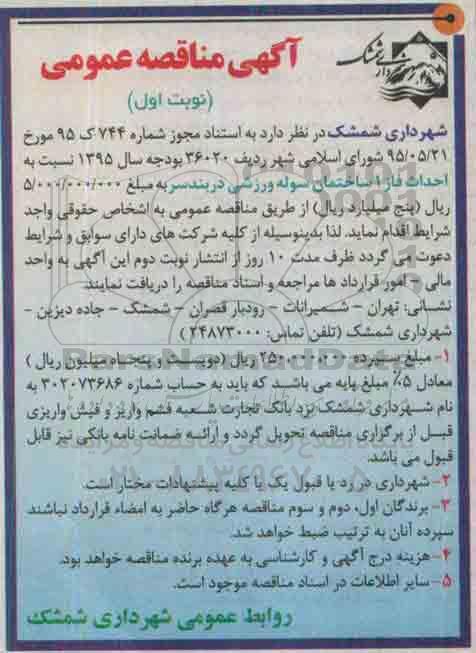 شهرداری شمشک
آگهی مناقصه عمومی
(نوبت اول)
شهرداری شمشک در نظر دارد به استناد مجوز شماره ۷۴۴ ک ۹۵ مورخ
۹۵/۰۵/۲۱ شورای اسلامی شهر ردیف ۳۶۰۲۰ بودجه سال ۱۳۹۵ نسبت به
احداث فاز ۱ ساختمان سوله ورزشی دربندسر به مبلغ ۵/۰۰۰/۰۰۰/۰۰۰
ریال (پنج میلیارد ریال) از طریق مناقصه عمومی به اشخاص حقوقی واجد
شرایط اقدام نماید. لذا بدینوسیله از کلیه شرکت های دارای سوابق و شرایط
دعوت می گردد ظرف مدت ۱۰ روز از انتشار نوبت دوم این آگهی به واحد
مالی - امور قرارداد ها مراجعه و اسناد مناقصه را دریافت نمایند.
نشانی: تهران - شمیرانات - رودبار قصران - شمشک - جاده دیزین -
شهرداری شمشک (تلفن تماس: ۲۴۸۷۳۰۰۰)
۱- مبلغ سپرده ۲۵۰,۰۰۰,۰۰۰ ریال (دویست و پنجاه میلیون ریال)
معادل ۵٪ مبلغ پایه می باشد که باید به حساب شماره ۳۰۲۰۷۳۶۸۶ به
نام شهرداری شمشک نزد بانک تجارت شعبه فشم واریز و فیش واریزی
قبل از برگزاری مناقصه تحویل گردد و ارائه ضمانت نامه بانکی نیز قابل
قبول می باشد.
۲- شهرداری در رد یا قبول یک یا کلیه پیشنهادات مختار است.
۳- برندگان اول، دوم و سوم مناقصه هرگاه حاضر به امضاء قرارداد نباشند
سپرده آنان به ترتیب ضبط خواهد شد.
۴- هزینه درج آگهی و کارشناسی به عهده برنده مناقصه خواهد بود.
۵- سایر اطلاعات در اسناد مناقصه موجود است.
روابط عمومی شهرداری شمشک
ParsNamadData
۰۲۱-۸۸۳۴۹۶۷۰-۵